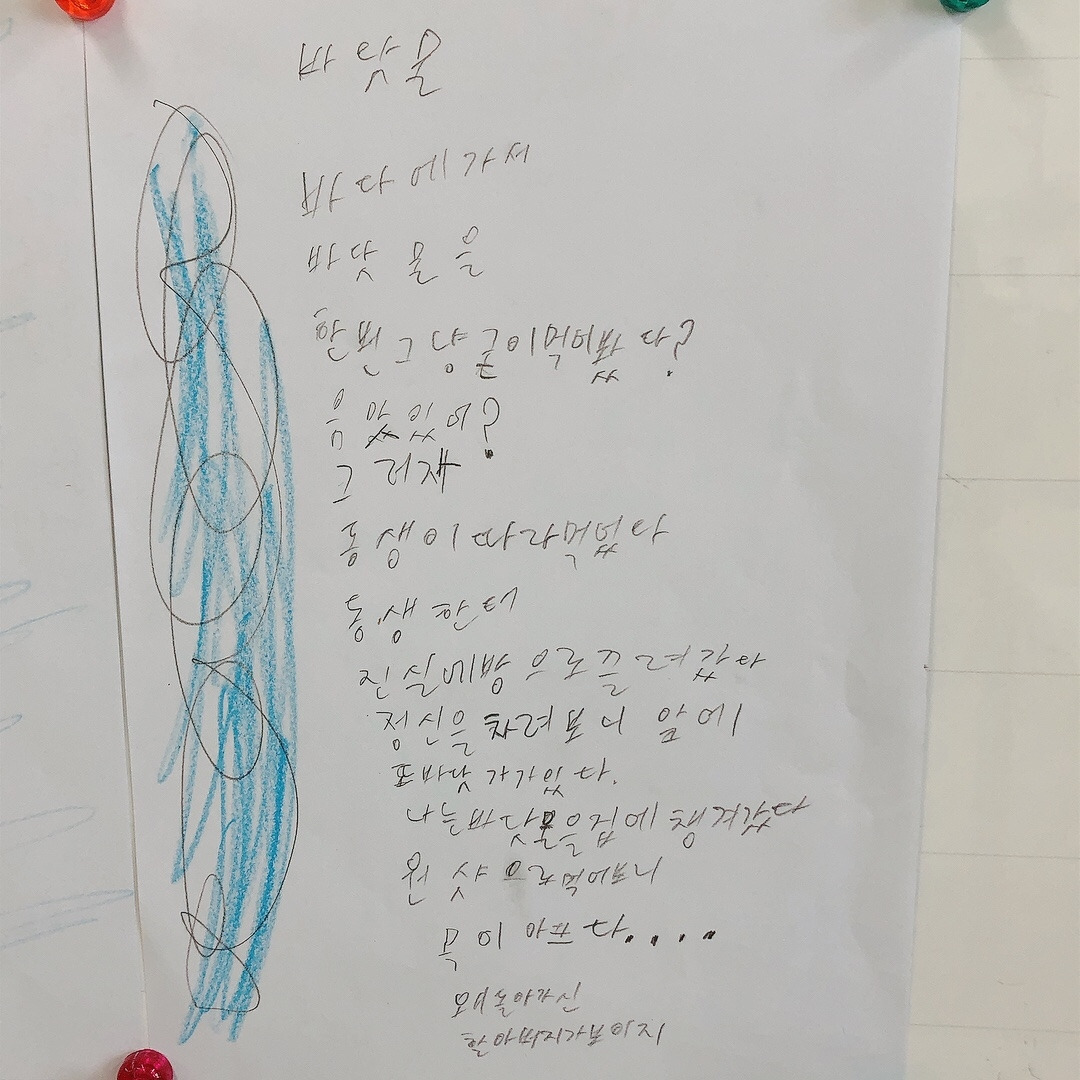 바닷물
바다에가서
바닷물을
한번그냥굳이먹어봤다?
음맛있어?
그러재
동생이따라먹었다
동생한테
진실에방으로끌려갔다
정신을차려보니 앞에
또바닷가가있다.
나는바닷물을집에챙겨갔다
원샷으로먹어보니
목이아프다....
왜돌아가신
할아버지가보이지